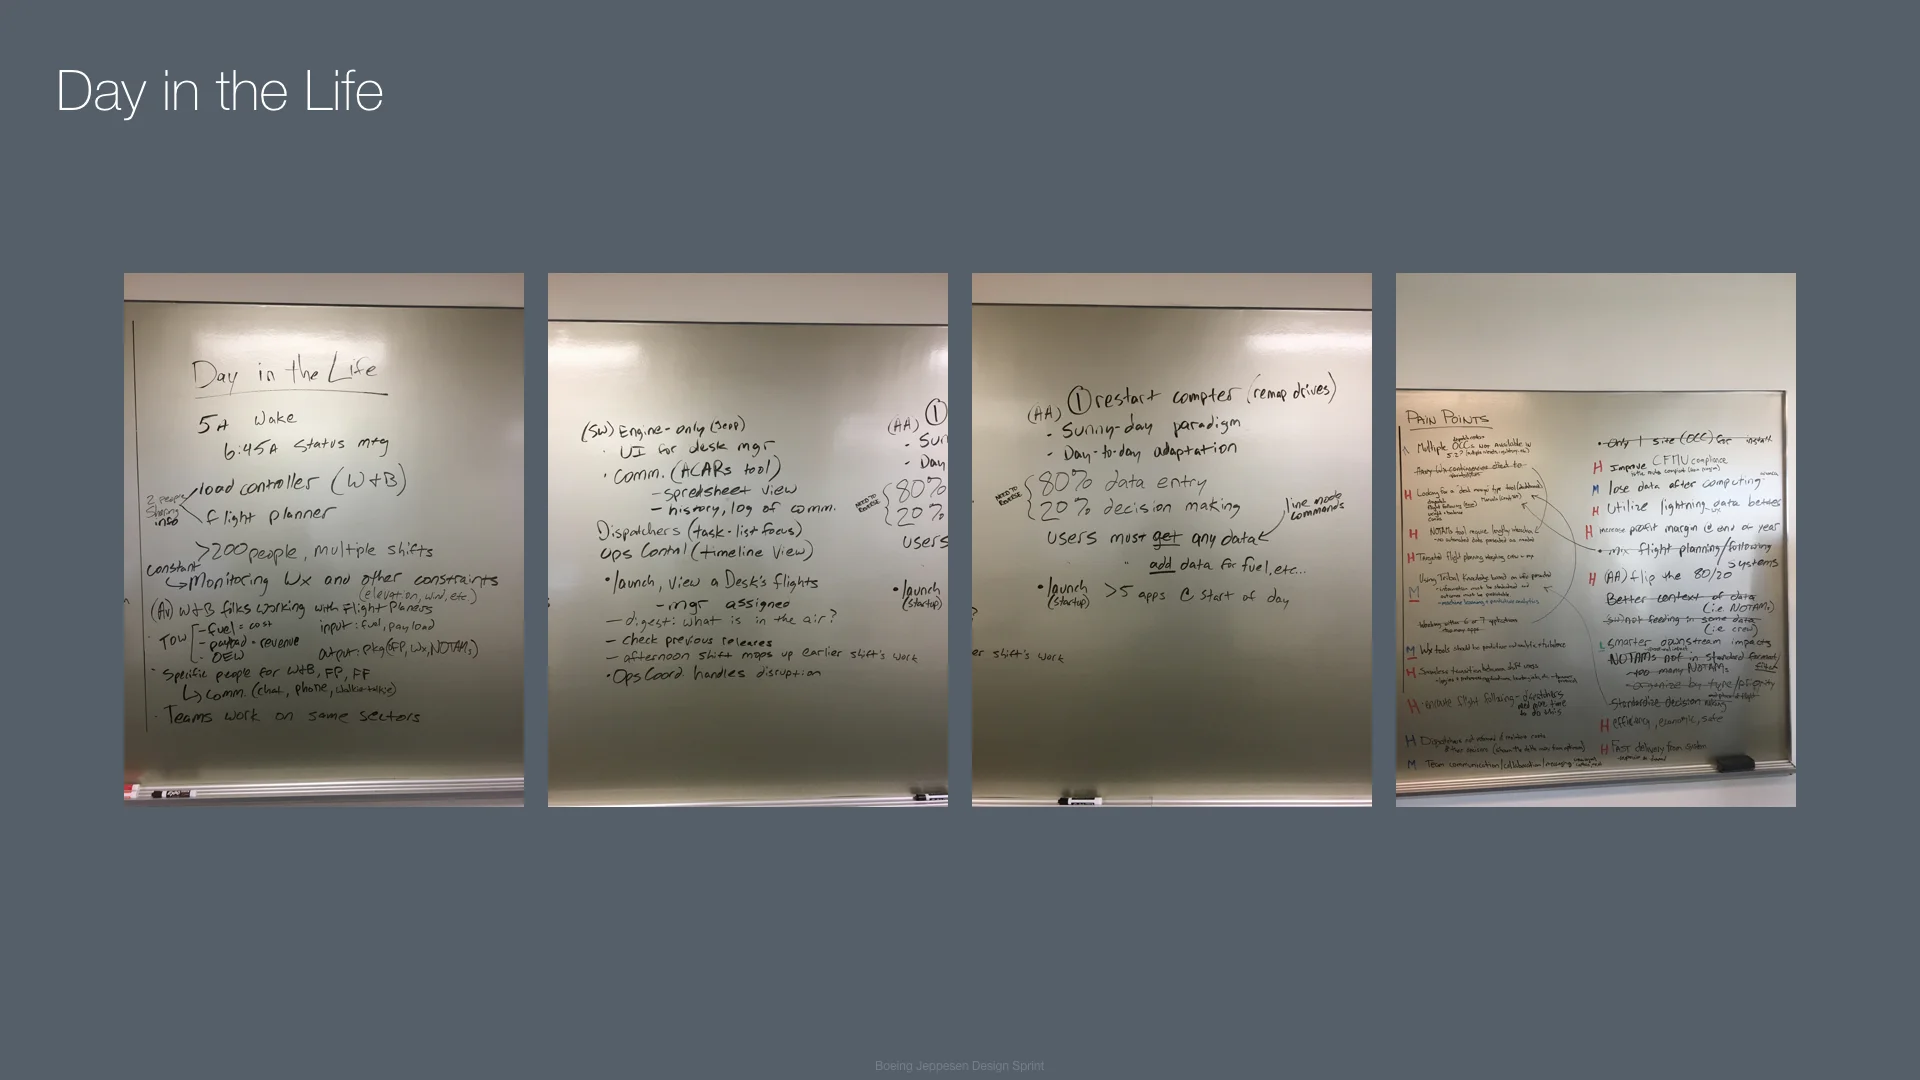 Day in the Life
Day in the Life
5A Wake
6:45A Status mtg
load controller (W+B)
2 people
Sharing
info
flight planner
>200 people, multiple shifts
Constant
Monitoring Wx and other constraints
(elevation, wind, etc.)
W+B folks working with Flight Planers
TOW
- fuel = cost
- payload = revenue
- OEW
input: fuel, payload
output: pkg (FP, Wx, NOTAMs)
· Specific people for W+B, FP, FF
Comm. (chat, phone, walkie-talkie)
· Teams work on same sectors
(SW) Engine-only
· UI for desk mgr
· Comm. (ACARs tool)
- spredsheet view
- history, log of comm.
Dispatchers (task-list focus)
Ops Control (timeline view)
· launch, view a Desk's flights
- mgr assigned
- digest: what is in the air?
- check previous releases
- afternoon shift mops up earlier shift's work
· Ops Coord. handles disruption
(AA) 1
- Sun
- Day
NEED TO
REVERSE
80%
20%
users
· launch
(startup)
(AA) 1 restart compter (remap drives)
- Sunny-day paradigm
- Day-to-day adaptation
NEED TO
REVERSE
80% data entry
20% decision making
line mode
commands
users must get any data
" add data for fuel, etc...
· launch
(startup)
>5 apps @ start of day
er shift's work
PAIN POINTS
Multiple OCCs not available w
H Looking for a "desk mngr" type tool (dashboard)
H NOTAMs tool require lengthy
H Targeted flight planning
M Using Tribal Knowledge based on
Working within 6 or 7 applications
M Wx tools should be predictive
H Seamless transition between shift
H flight following - dispatchers
need more time
to do this
H Dispatchers not
M Team communication/collaboration/messaging
· Only 1 site (OCC) for install
H Improve CFMU compliance
M lose data after computing
H Utilize lightning data better
H increase profit margin @ end of year
· mix flight planning/following
systems
H (AA) flip the 80/20
Better context of data
(i.e. NOTAMs)
SW not feeding in some data
(i.e. crew)
L smarter downstream impacts
NOTAMs not in standard format/
filter
- too many NOTAMs
- organize by type/priority
Standardize decision making
H efficiency, economic, safe
H Fast delivery from system
Boeing Jeppesen Design Sprint